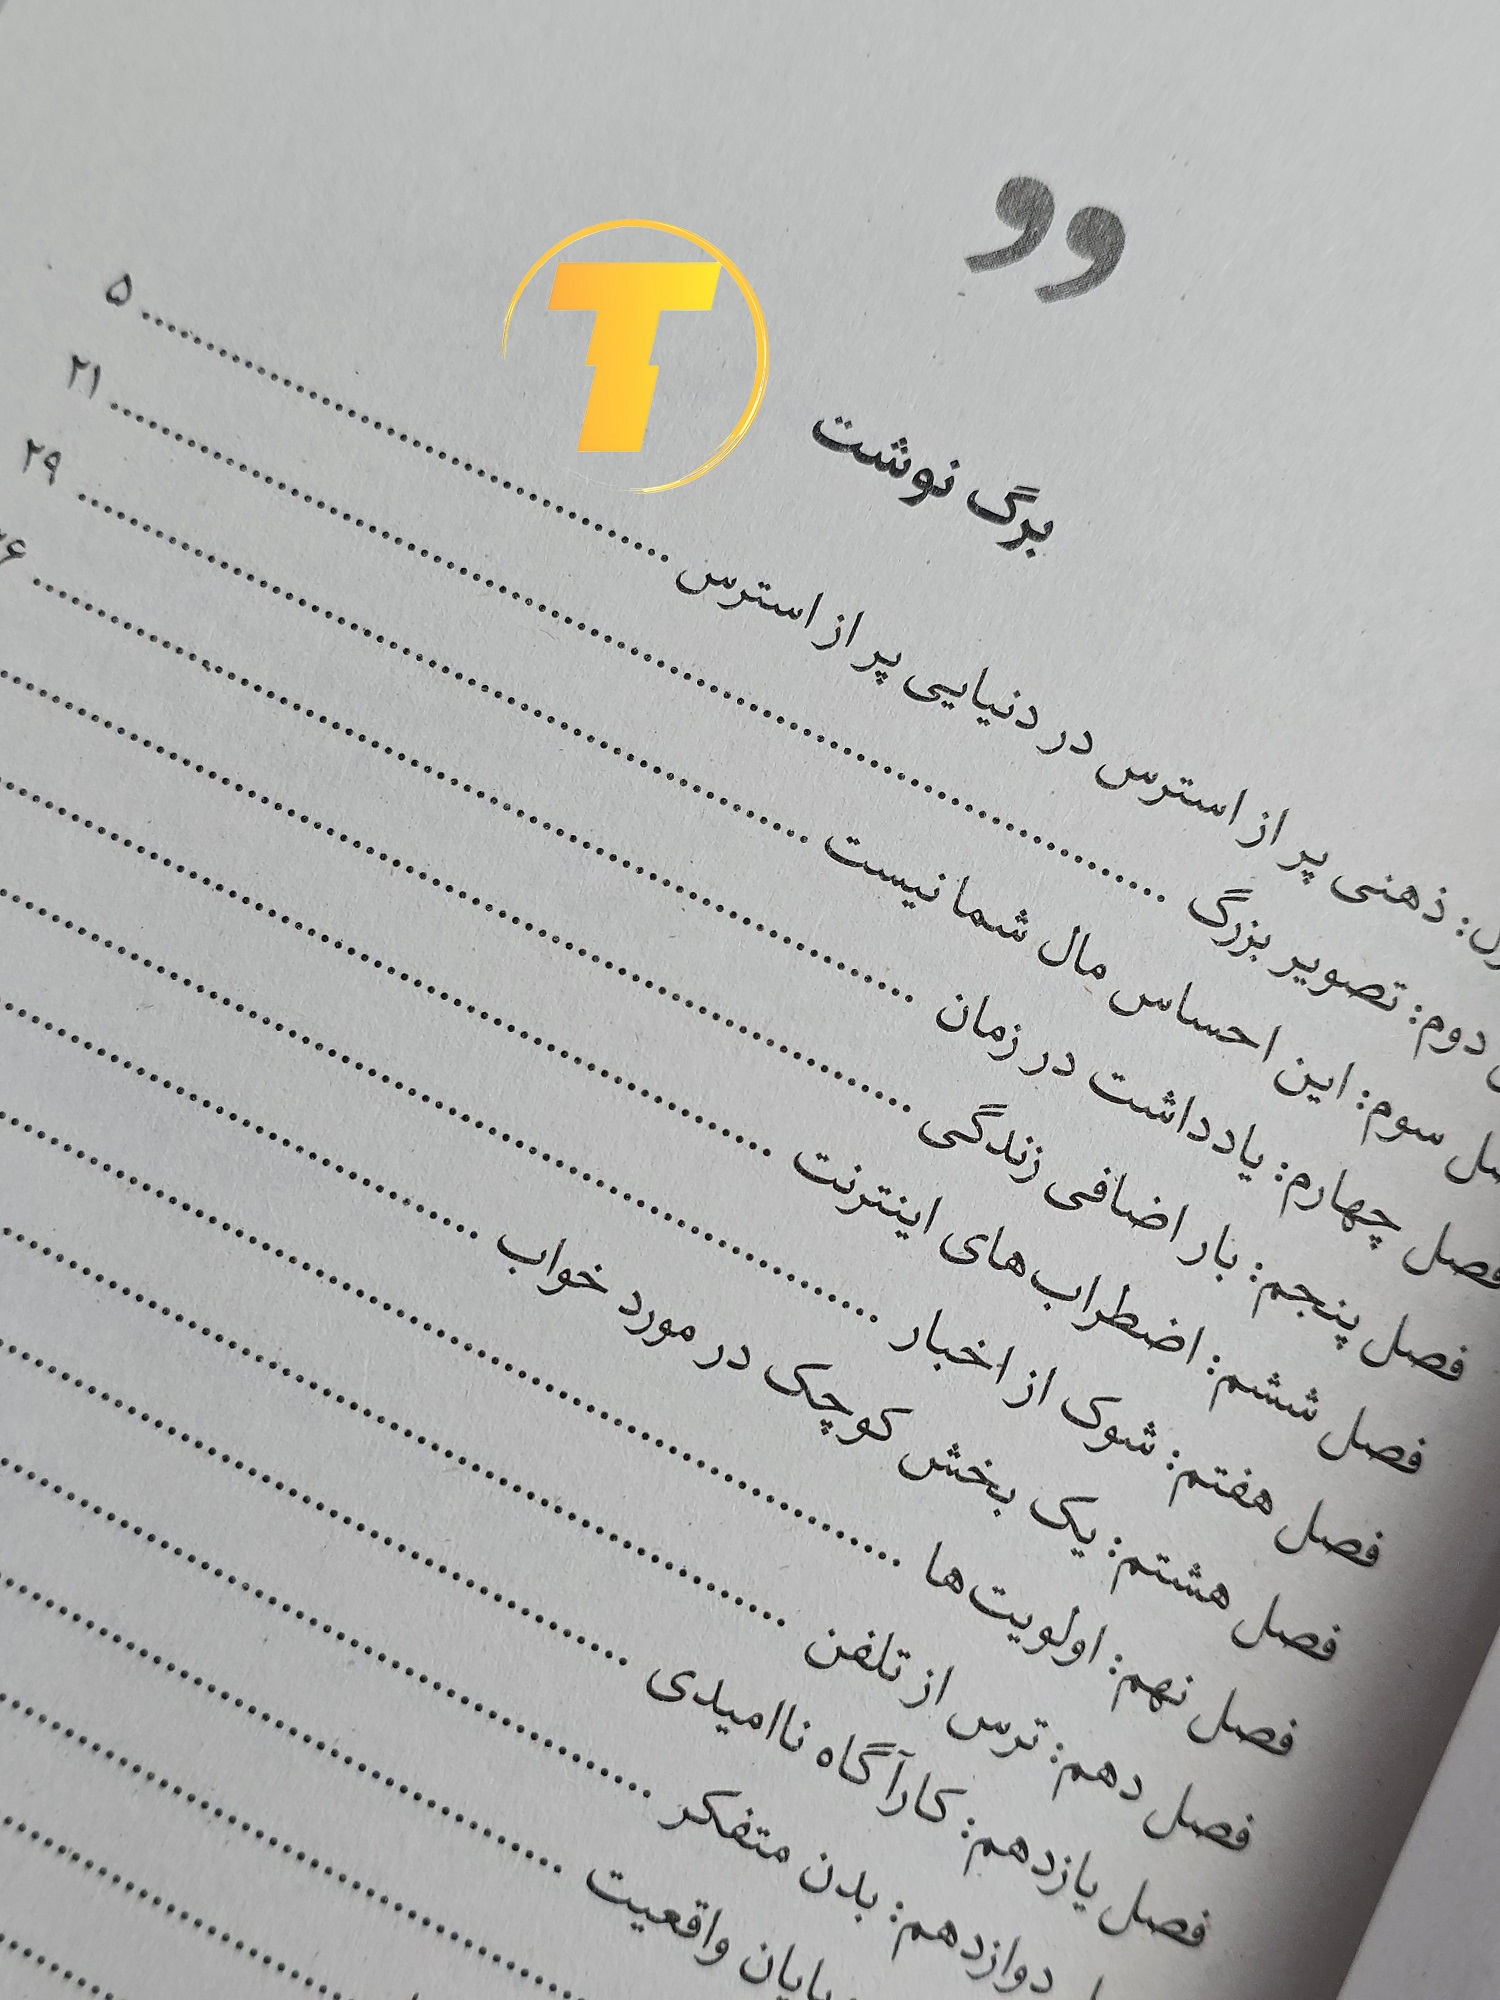 T
برگ نوشت
ذهنی پر از استرس در دنیایی پر از استرس ........ ۵
دوم: تصویر بزرگ ........ ۲۱
سوم: این احساس مال شما نیست ........ ۲۹
فصل چهارم: یادداشت در زمان ........
فصل پنجم: بار اضافی زندگی ........
فصل ششم: اضطراب‌های اینترنت ........
فصل هفتم: شوک از اخبار ........
فصل هشتم: یک بخش کوچک در مورد خواب ........
فصل نهم: اولویت‌ها ........
فصل دهم: ترس از تلفن ........
فصل یازدهم: کارآگاه ناامیدی ........
دوازدهم: بدن متفکر ........
پایان واقعیت ........